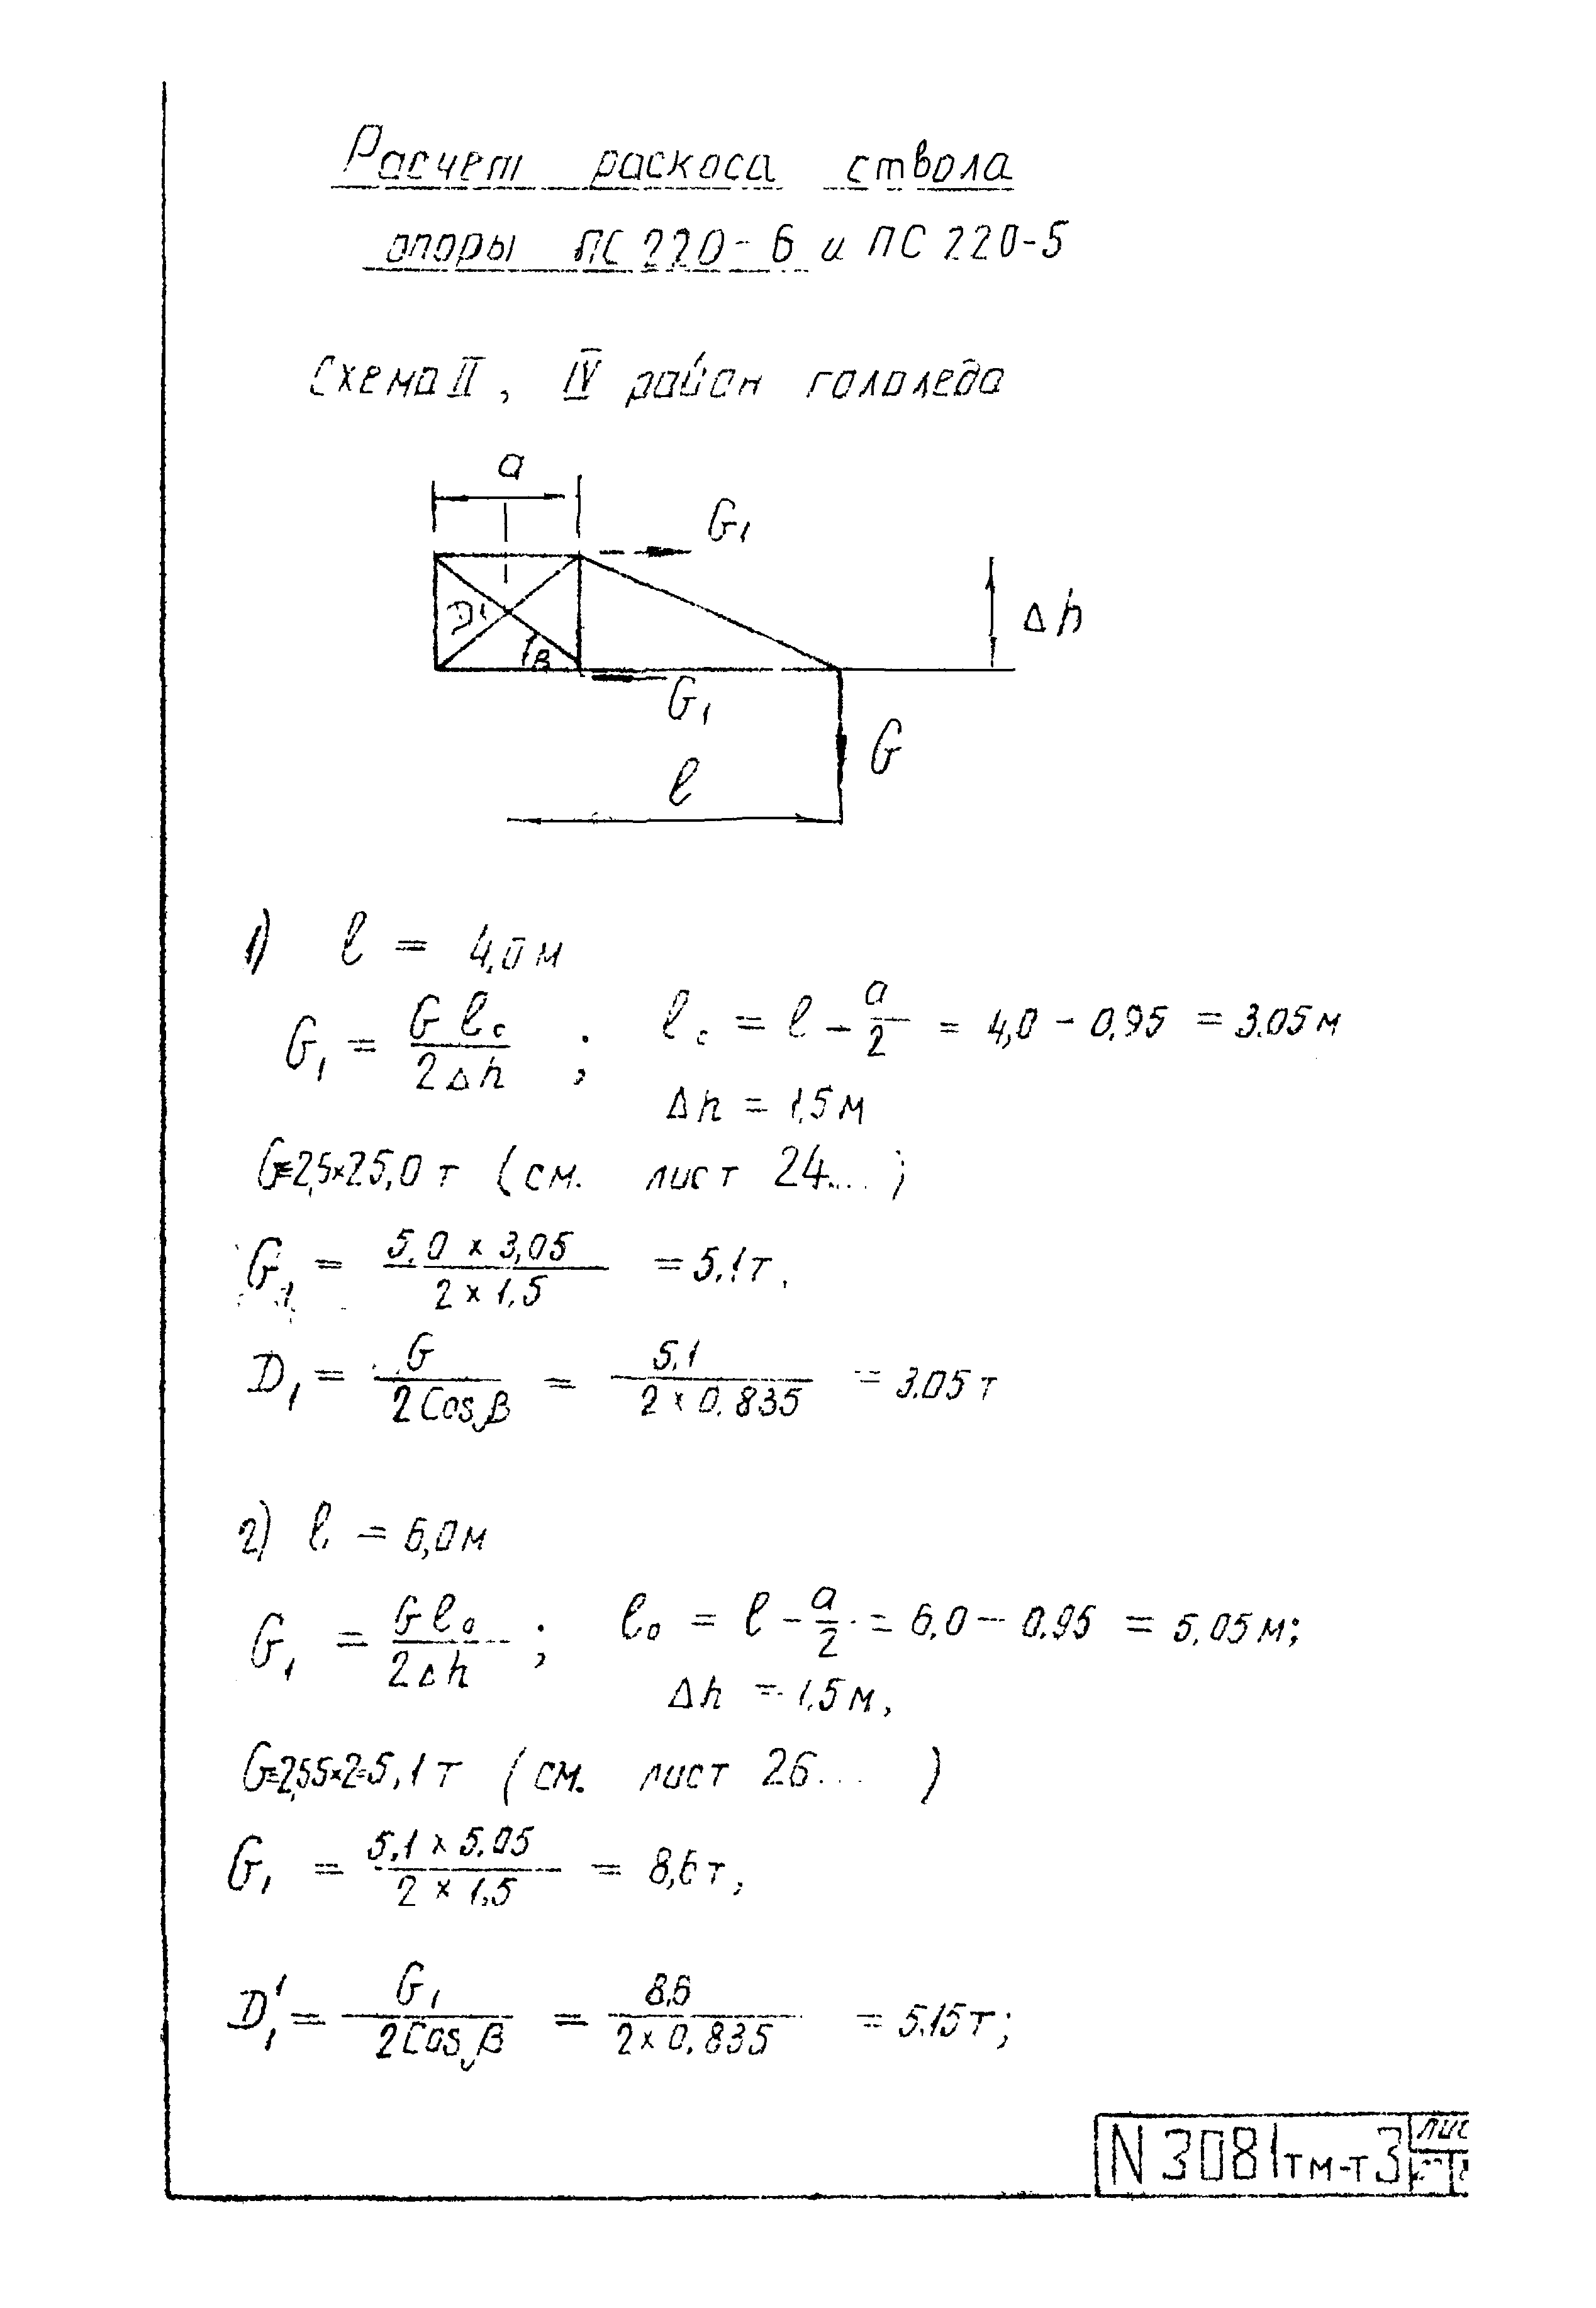 Расчет раскоса ствола
опоры ПС 220-6 и ПС 220-5
Схема II, IV район гололеда
a
G₁
D¹
β
Δh
G₁
G
l
1) l = 4,0 м
G₁ = G lc / 2Δh ; lc = l - a/2 = 4,0 - 0,95 = 3.05 м
Δh = 1,5 м
G=2,5×2 5,0 т (см. лист 24...)
G₁ = 5,0 × 3,05 / 2 × 1,5 = 5,1 т.
D₁ = G / 2Cosβ = 5,1 / 2 × 0.835 = 3.05 т
2) l = 6,0 м
G₁ = G l₀ / 2Δh ; l₀ = l - a/2 = 6,0 - 0.95 = 5,05 м;
Δh = 1,5 м,
G=2,55×2=5,1 т (см. лист 26...)
G₁ = 5,1 × 5,05 / 2 × 1,5 = 8,6 т,
D₁¹ = G₁ / 2Cosβ = 8,6 / 2 × 0,835 = 5.15 т;
N 3081тм-т3 лис